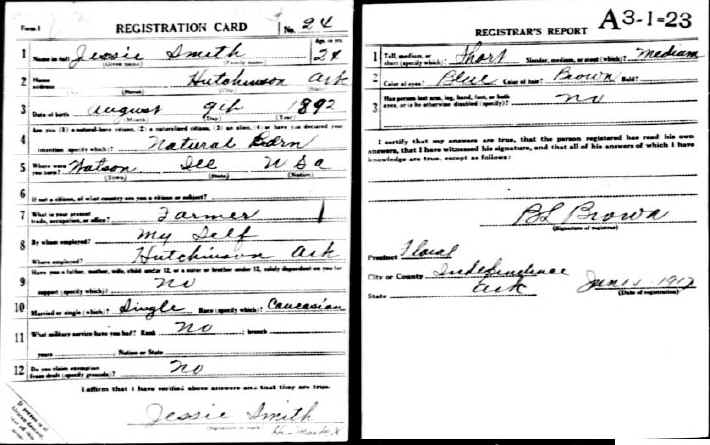 Form 1 REGISTRATION CARD No. 24
1 Name in full Jessie Smith Age, in yrs. 24
(Given name) (Family name)
2 Home address Hutchinson Ark
(No.) (Street) (City) (State)
3 Date of birth August 9th 1892
(Month) (Day) (Year)
4 Are you (1) a natural-born citizen, (2) a naturalized citizen, (3) an alien, (4) or have you declared your
intention (specify which)? Natural Born
5 Where were you born? Watson Ill U S a
(Town) (State) (Nation)
6 If not a citizen, of what country are you a citizen or subject?
7 What is your present trade, occupation, or office? Farmer
8 By whom employed? My Self
Where employed? Hutchinson Ark
9 Have you a father, mother, wife, child under 12, or a sister or brother under 12, solely dependent on you for
support (specify which)? No
10 Married or single (which)? Single Race (specify which)? Caucasian
11 What military service have you had? Rank No ; branch
years ; Nation or State
12 Do you claim exemption from draft (specify grounds)? No
I affirm that I have verified above answers and that they are true.
Jessie Smith
(Signature or mark)
REGISTRAR'S REPORT A3-1-23
1 Tall, medium, or short (specify which)? Short Slender, medium, or stout (which)? Medium
2 Color of eyes? Blue Color of hair? Brown Bald?
3 Has person lost arm, leg, hand, foot, or both
eyes, or is he otherwise disabled (specify)? No
I certify that my answers are true, that the person registered has read his own
answers, that I have witnessed his signature, and that all of his answers of which I have
knowledge are true, except as follows:
B L Brown
(Signature of registrar)
Precinct Floral
City or County Independence
State Ark
(Date of registration)